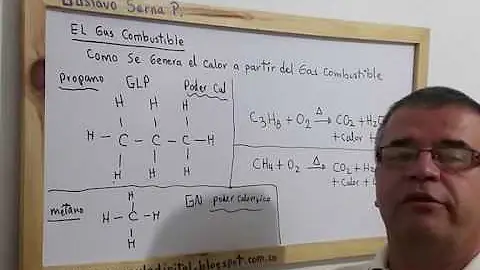 Gustavo Serna P.
EL Gas Combustible
Como Se Genera el Calor a partir del Gas Combustible
Propano GLP Poder Cal
H H H
H - C - C - C - H
H H H
C3H8 + O2 Δ→ CO2 + H2
+ Calor +
CH4 + O2 Δ→ CO2 + H2
+ Calor +
metano GN poder calorifico
H
H - C - H
H
.blogspot.com